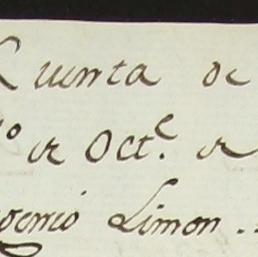 Quenta de
de Octe. de
genio Limon..